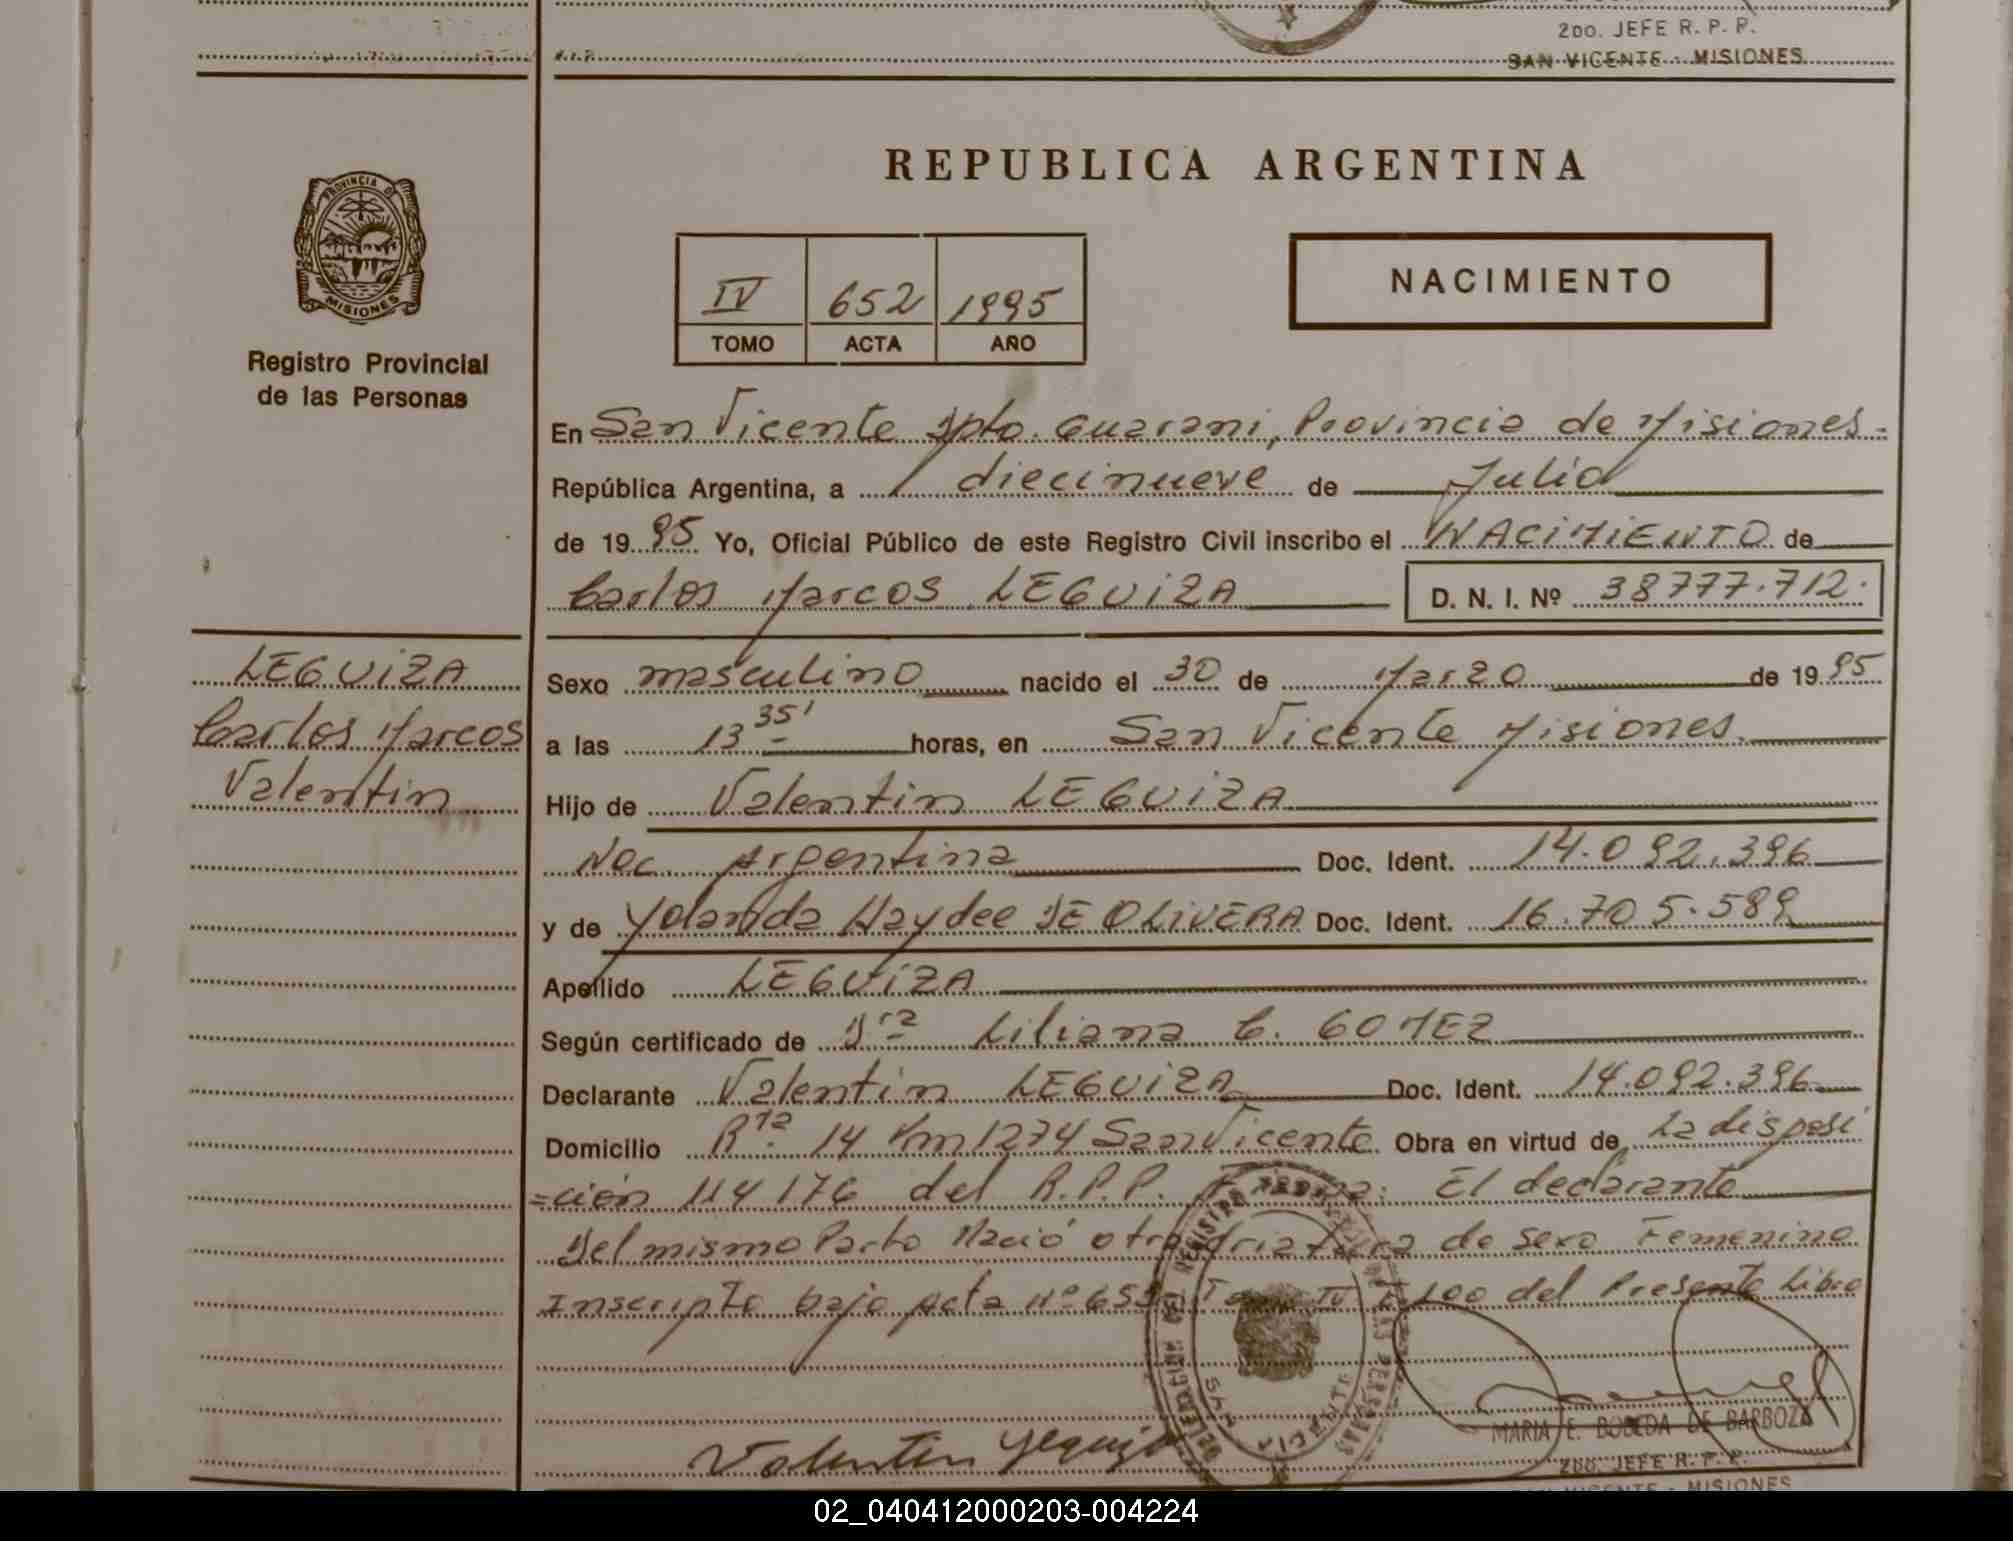 2DO. JEFE R. P. P.
SAN VICENTE - MISIONES
REPUBLICA ARGENTINA
PROVINCIA DE
MISIONES
Registro Provincial
de las Personas
IV 652 1995
TOMO ACTA AÑO
NACIMIENTO
En San Vicente Dpto. Guarani, Provincia de Misiones.
República Argentina, a diecinueve de Julio
de 1995 Yo, Oficial Público de este Registro Civil inscribo el NACIMIENTO de
Carlos Marcos LEGUIZA D. N. I. Nº 38777.712.
LEGUIZA
Carlos Marcos
Valentin
Sexo masculino nacido el 30 de Marzo de 1995
a las 13 35' horas, en San Vicente Misiones.
Hijo de Valentin LEGUIZA
Nac. Argentina Doc. Ident. 14.092.396
y de Yolanda Haydee DE OLIVERA Doc. Ident. 16.705.589
Apellido LEGUIZA
Según certificado de Dra Liliana C. GOMEZ
Declarante Valentin LEGUIZA Doc. Ident. 14.092.396
Domicilio Rta. 14 Km 1274 San Vicente Obra en virtud de La disposi
=ción 114176 del R.P.P. Firma: El declarante
Del mismo Parto Nació otra Criatura de Sexo Femenino
Inscripto bajo Acta Nº 653 Tomo IV del Presente Libro
Valentin Leguiza
MARIA E. BOBEDA DE BARBOZA
2DO. JEFE R. P. P.
SAN VICENTE - MISIONES
02_040412000203-004224